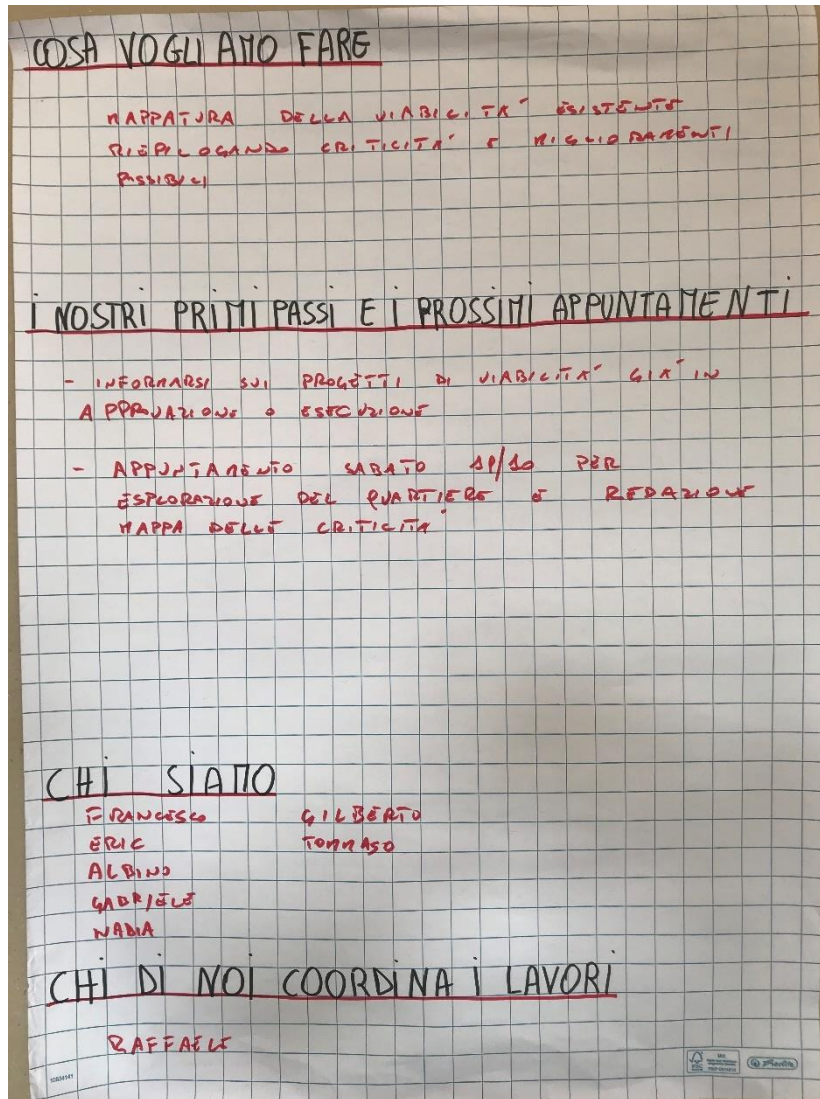 COSA VOGLIAMO FARE
MAPPATURA DELLA VIABILITÀ ESISTENTE
RIEPILOGANDO CRITICITÀ E MIGLIORAMENTI
POSSIBILI
I NOSTRI PRIMI PASSI E I PROSSIMI APPUNTAMENTI
- INFORMARSI SUI PROGETTI DI VIABILITÀ GIÀ IN
APPROVAZIONE O ESECUZIONE
- APPUNTAMENTO SABATO PER
ESPLORAZIONE DEL QUARTIERE E REDAZIONE
MAPPA DELLE CRITICITÀ
CHI SIAMO
FRANCESCO GILBERTO
ERIC TOMMASO
ALBINO
GABRIELE
NADIA
CHI DI NOI COORDINA I LAVORI
RAFFAELE